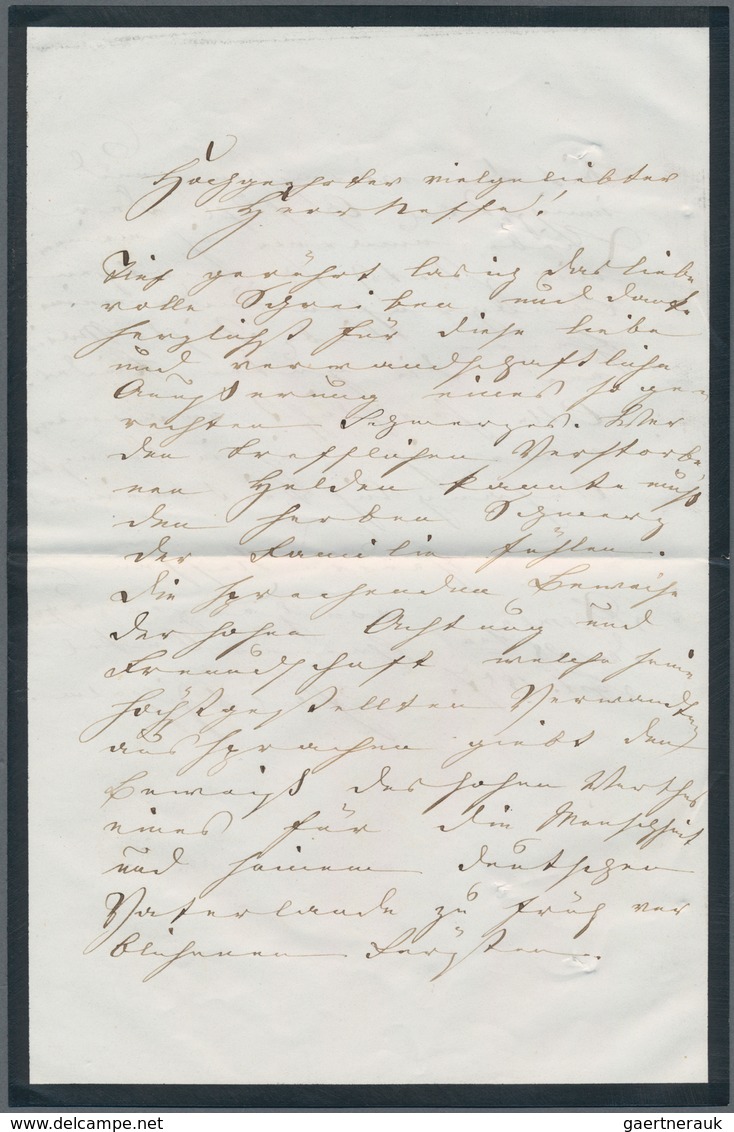 Hochgeehrter vielgeliebter
Herr Neffe!
Tief gerührt las ich das liebe
volle Schreiben und danke
herzlichst für diese liebe
und verwandschaftliche
Äußerung eines so ge
rechten Schmerzes. Wer
den trefflichen Verstorbe
nen Helden kannte muß
den herben Schmerz
der Familie fühlen.
Die sprechenden Beweise
der hohen Achtung und
Freundschaft welche seine
höchstgestellten Verwandten
aussprachen giebt den
Beweiß des hohen Werthes
eines für die Menschheit
und seinem deutschen
Vaterlande zu früh ver
blichenen Fürsten.
delcampe.net
gaertnerauk